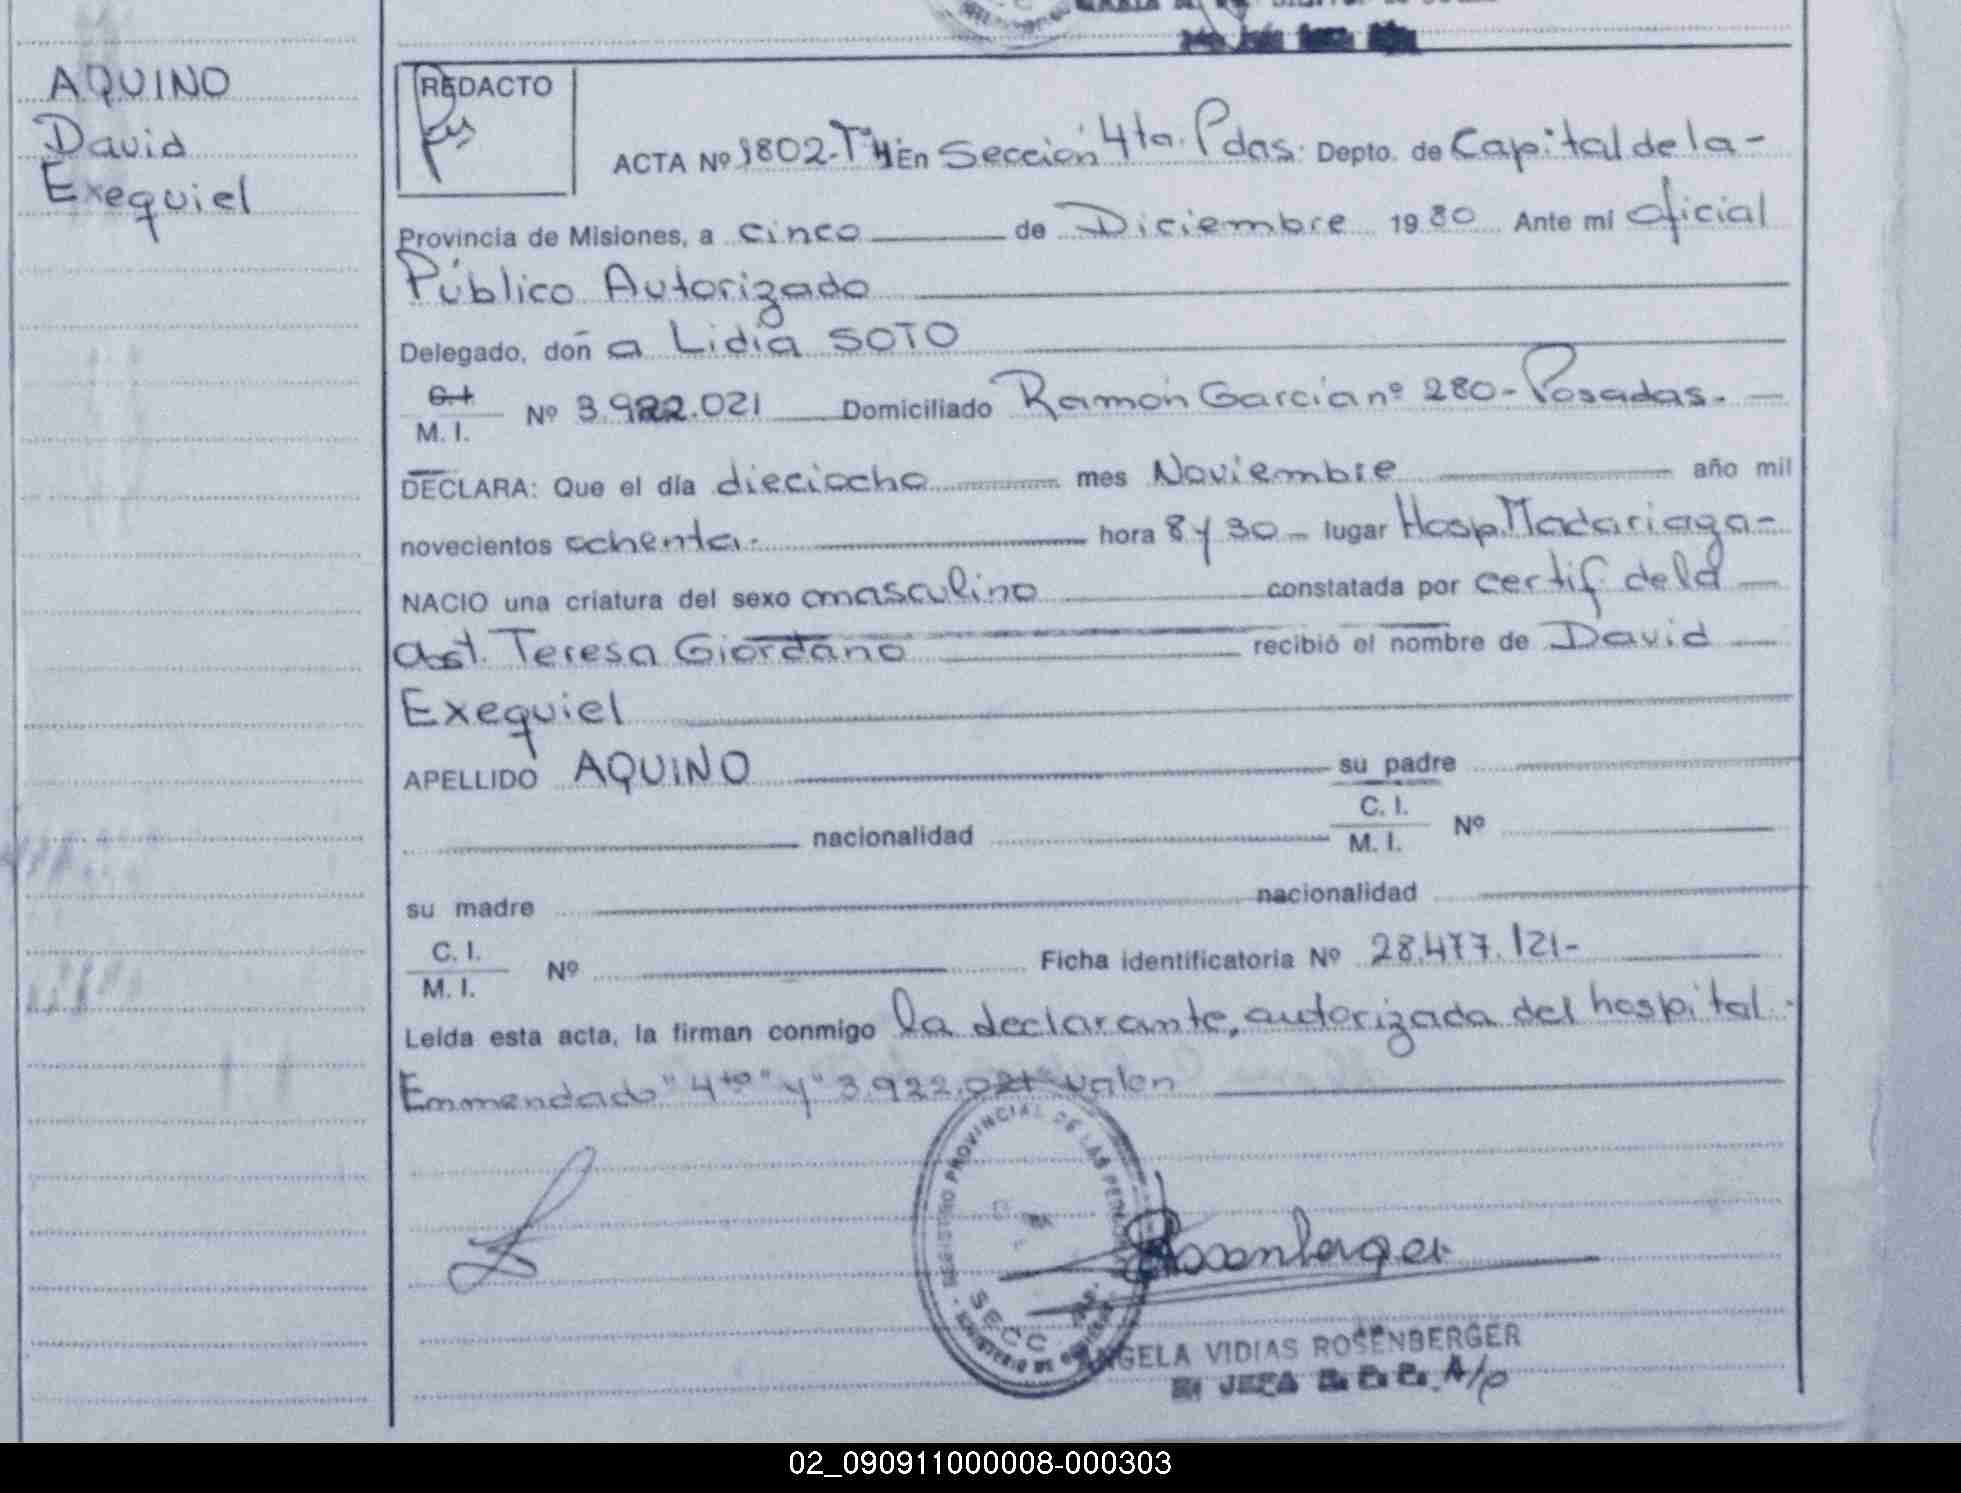 AQUINO
David
Exequiel
REDACTO
ACTA Nº 1802-Tº4 En Sección 4ta. Pdas. Depto. de Capital de la-
Provincia de Misiones, a cinco de Diciembre 1980 Ante mí oficial
Público Autorizado
Delegado, doñ a Lidia SOTO
C.I.
M. I. Nº 3.922.021 Domiciliado Ramón García nº 280-Posadas.-
DECLARA: Que el día dieciocho mes Noviembre año mil
novecientos ochenta.- hora 8 y 30- lugar Hosp. Madariaga-
NACIO una criatura del sexo masculino constatada por certif. de la
obst. Teresa Giordano recibió el nombre de David
Exequiel
APELLIDO AQUINO su padre
nacionalidad C. I. M. I. Nº
su madre nacionalidad
C. I. M. I. Nº Ficha identificatoria Nº 28.477.121-
Leída esta acta, la firman conmigo la declarante, autorizada del hospital.-
Emmendado "4to" y "3.922.021" valen
REGISTRO PROVINCIAL DE LAS PERSONAS
SECC
MINISTERIO DE GOBIERNO
Rosenberger
ANGELA VIDIAS ROSENBERGER
JEFA A/c
02_090911000008-000303